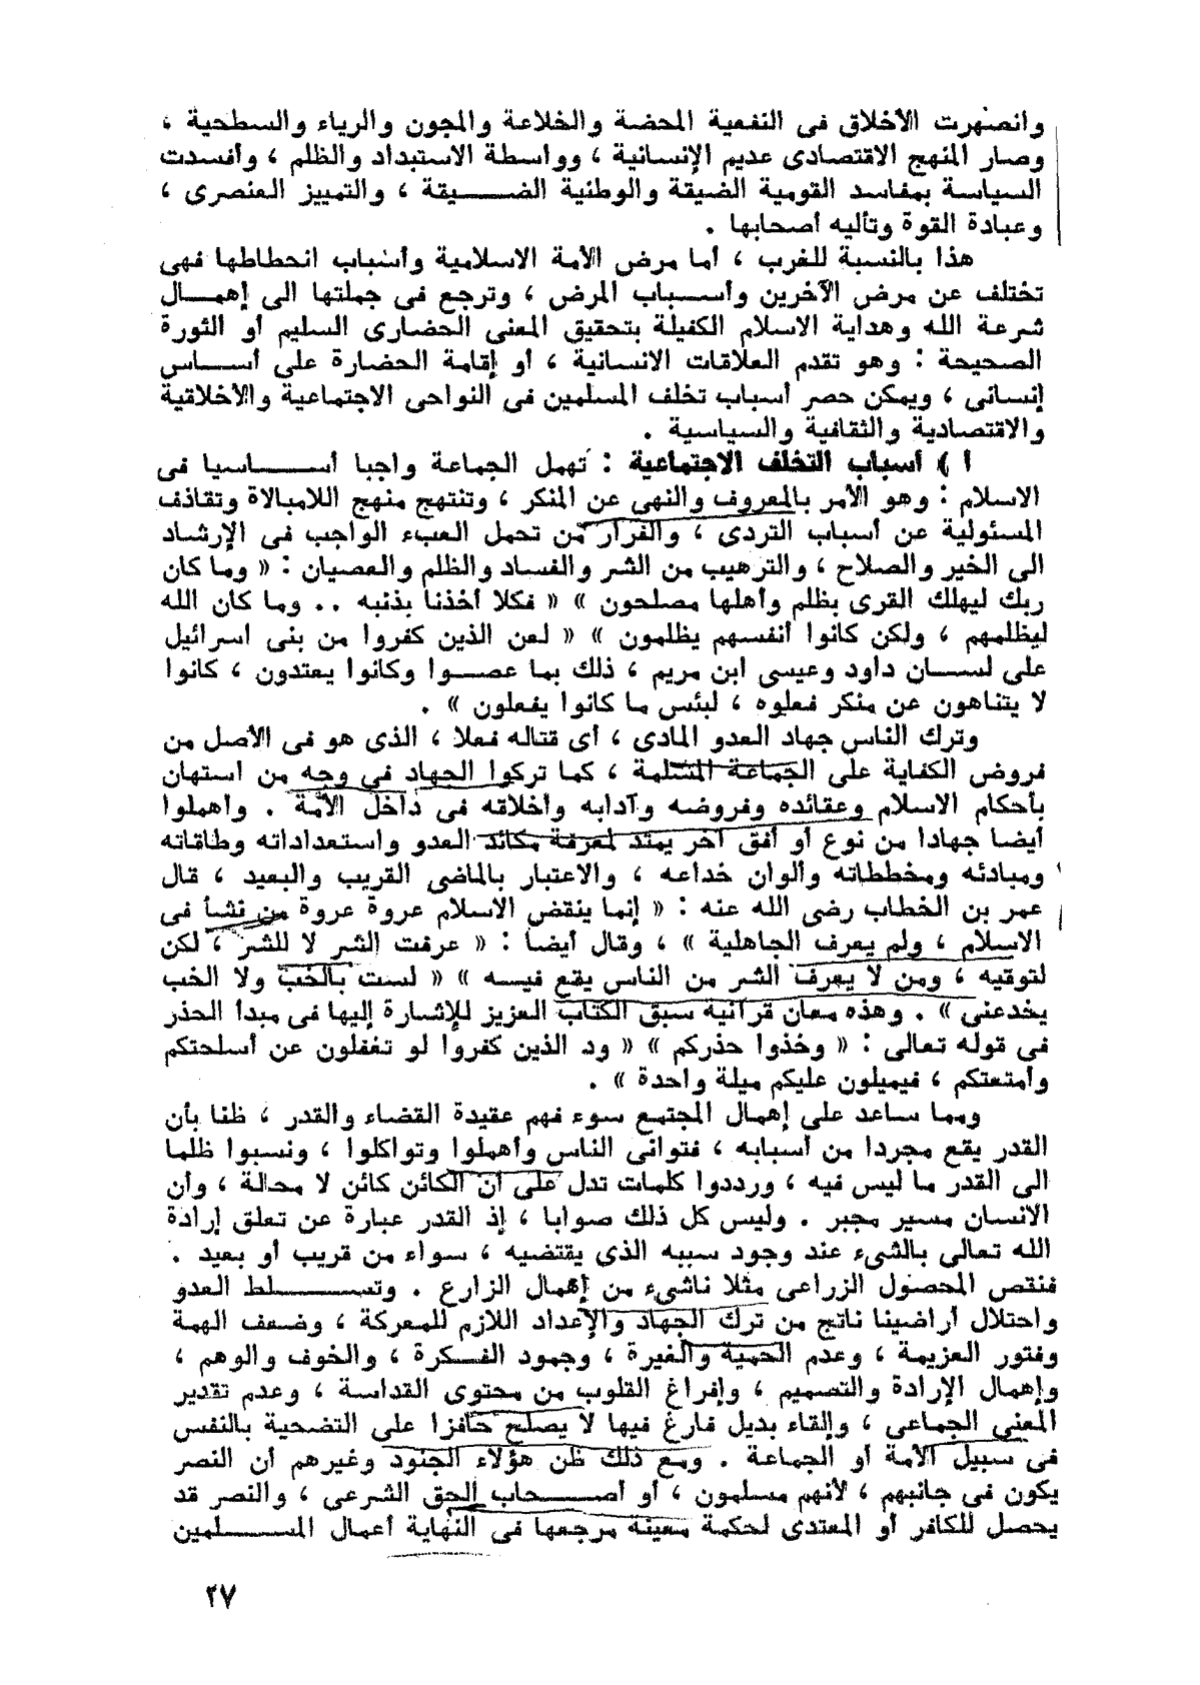 وانصهرت الأخلاق فى النفعية المحضة والخلاعة والمجون والرياء والسطحية ،
وصار المنهج الاقتصادى عديم الإنسانية ، وواسطة الاستبداد والظلم ، وأفسدت
السياسة بمفاسد القومية الضيقة والوطنية الضيقة ، والتمييز العنصرى ،
وعبادة القوة وتأليه أصحابها .
هذا بالنسبة للغرب ، أما مرض الأمة الاسلامية وأسباب انحطاطها فهى
تختلف عن مرض الآخرين وأسباب المرض ، وترجع فى جملتها الى إهمال
شرعة الله وهداية الاسلام الكفيلة بتحقيق المعنى الحضارى السليم أو الثورة
الصحيحة : وهو تقدم العلاقات الانسانية ، أو إقامة الحضارة على أساس
إنسانى ، ويمكن حصر أسباب تخلف المسلمين فى النواحى الاجتماعية والأخلاقية
والاقتصادية والثقافية والسياسية .
أ ) أسباب التخلف الاجتماعية : تهمل الجماعة واجبا أساسيا فى
الاسلام : وهو الأمر بالمعروف والنهى عن المنكر ، وتنتهج منهج اللامبالاة وتقاذف
المسئولية عن أسباب التردى ، والفرار من تحمل العبء الواجب فى الإرشاد
الى الخير والصلاح ، والترهيب من الشر والفساد والظلم والعصيان : « وما كان
ربك ليهلك القرى بظلم وأهلها مصلحون » « فكلا أخذنا بذنبه .. وما كان الله
ليظلمهم ، ولكن كانوا أنفسهم يظلمون » « لعن الذين كفروا من بنى اسرائيل
على لسان داود وعيسى ابن مريم ، ذلك بما عصوا وكانوا يعتدون ، كانوا
لا يتناهون عن منكر فعلوه ، لبئس ما كانوا يفعلون » .
وترك الناس جهاد العدو المادى ، أى قتاله فعلا ، الذى هو فى الأصل من
فروض الكفاية على الجماعة المسلمة ، كما تركوا الجهاد فى وجه من استهان
بأحكام الاسلام وعقائده وفروضه وآدابه وأخلاقه فى داخل الأمة . وأهملوا
أيضا جهادا من نوع أو أفق آخر يمتد لمعرفة مكائد العدو واستعداداته وطاقاته
ومبادئه ومخططاته وألوان خداعه ، والاعتبار بالماضى القريب والبعيد ، قال
عمر بن الخطاب رضى الله عنه : « إنما ينقض الاسلام عروة عروة من نشأ فى
الاسلام ، ولم يعرف الجاهلية » ، وقال أيضا : « عرفت الشر لا للشر ، لكن
لتوقيه ، ومن لا يعرف الشر من الناس يقع فيسه » « لست بالخب ولا الخب
يخدعنى » . وهذه معان قرآنية سبق الكتاب العزيز للإشارة إليها فى مبدأ الحذر
فى قوله تعالى : « وخذوا حذركم » « ود الذين كفروا لو تغفلون عن أسلحتكم
وأمتعتكم ، فيميلون عليكم ميلة واحدة » .
ومما ساعد على إهمال المجتمع سوء فهم عقيدة القضاء والقدر ، ظنا بأن
القدر يقع مجردا من أسبابه ، فتوانى الناس وأهملوا وتواكلوا ، ونسبوا ظلما
الى القدر ما ليس فيه ، ورددوا كلمات تدل على أن الكائن كائن لا محالة ، وأن
الانسان مسير مجبر . وليس كل ذلك صوابا ، إذ القدر عبارة عن تعلق إرادة
الله تعالى بالشىء عند وجود سببه الذى يقتضيه ، سواء من قريب أو بعيد .
فنقص المحصول الزراعى مثلا ناشىء من إهمال الزارع . وتسلط العدو
واحتلال أراضينا ناتج من ترك الجهاد والإعداد اللازم للمعركة ، وضعف الهمة
وفتور العزيمة ، وعدم الحمية والغيرة ، وجمود الفكرة ، والخوف والوهم ،
وإهمال الإرادة والتصميم ، وإفراغ القلوب من محتوى القداسة ، وعدم تقدير
المعنى الجماعى ، وإلقاء بديل فارغ فيها لا يصلح حافزا على التضحية بالنفس
فى سبيل الأمة أو الجماعة . ومع ذلك ظن هؤلاء الجنود وغيرهم أن النصر
يكون فى جانبهم ، لأنهم مسلمون ، أو أصحاب الحق الشرعى ، والنصر قد
يحصل للكافر أو المعتدى لحكمة معينة مرجعها فى النهاية أعمال المسلمين
٢٧